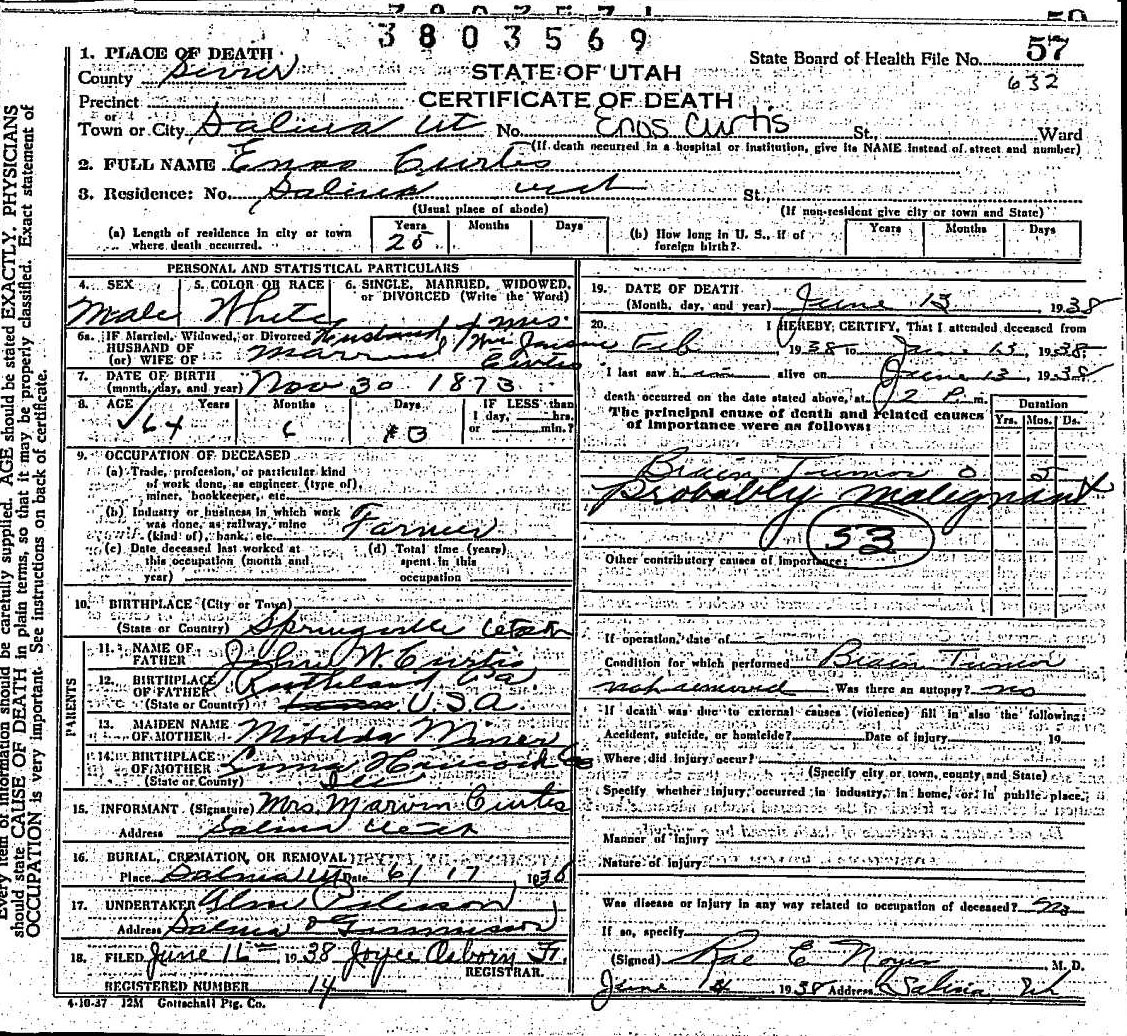 3803569
1. PLACE OF DEATH
County Sevier
STATE OF UTAH
State Board of Health File No. 57
632
Precinct
or
CERTIFICATE OF DEATH
Town or City Salina Ut No. Enos Curtis St., Ward
(If death occurred in a hospital or institution, give its NAME instead of street and number)
2. FULL NAME Enos Curtis
3. Residence: No. Salina St.,
(Usual place of abode) (If non-resident give city or town and State)
(a) Length of residence in city or town where death occurred. Years 25 Months Days
(b) How long in U. S., if of foreign birth? Years Months Days
PERSONAL AND STATISTICAL PARTICULARS
4. SEX Male
5. COLOR OR RACE White
6. SINGLE, MARRIED, WIDOWED, or DIVORCED (Write the Word)
6a. IF Married, Widowed, or Divorced
HUSBAND OF
(or) WIFE OF
Husband of Mrs.
Married Curtis
7. DATE OF BIRTH
(month, day, and year) Nov 30 1873
8. AGE Years 64 Months 6 Days 13 IF LESS than 1 day, hrs. or min.?
9. OCCUPATION OF DECEASED
(a) Trade, profession, or particular kind
of work done, as engineer (type of),
miner, bookkeeper, etc.
(b) Industry or business in which work
was done, as railway, mine
(kind of), bank, etc. Farmer
(c) Date deceased last worked at
this occupation (month and
year)
(d) Total time (years)
spent in this
occupation
10. BIRTHPLACE (City or Town)
(State or Country) Springville Utah
PARENTS
11. NAME OF
FATHER John W. Curtis
12. BIRTHPLACE
OF FATHER
(State or Country) U.S.A.
13. MAIDEN NAME
OF MOTHER Matilda Miner
14. BIRTHPLACE
OF MOTHER Hancock Co
(State or County) Ill
15. INFORMANT (Signature) Mrs. Marvin Curtis
Address Salina Utah
16. BURIAL, CREMATION, OR REMOVAL
Place Salina Ut Date 6/17 1938
17. UNDERTAKER
Address Salina & Gunnison
18. FILED June 16th 1938 Joyce Osborn
REGISTRAR.
REGISTERED NUMBER 14
4-10-37 12M Gottschall Ptg. Co.
19. DATE OF DEATH
(Month, day, and year) June 13 1938
20. I HEREBY CERTIFY, That I attended deceased from
Feb 1938 to June 13, 1938.
I last saw him alive on June 13, 1938
death occurred on the date stated above, at 2 P. m.
The principal cause of death and related causes
of importance were as follows:
Duration
Yrs. Mos. Ds.
Brain Tumor 0 5
Probably malignant
53
Other contributory causes of importance:
If operation, date of
Condition for which performed Brain Tumor
not removed Was there an autopsy? no
If death was due to external causes (violence) fill in also the following:
Accident, suicide, or homicide? Date of injury 19
Where did injury occur?
(Specify city or town, county and State)
Specify whether injury occurred in industry, in home, or in public place.
Manner of injury
Nature of injury
Was disease or injury in any way related to occupation of deceased? no
If so, specify
(Signed) Rae E Noyes M. D.
June 14 1938 Address Salina Ut
Every item of information should be carefully supplied. AGE should be stated EXACTLY. PHYSICIANS
should state CAUSE OF DEATH in plain terms, so that it may be properly classified. Exact statement of
OCCUPATION is very important. See instructions on back of certificate.